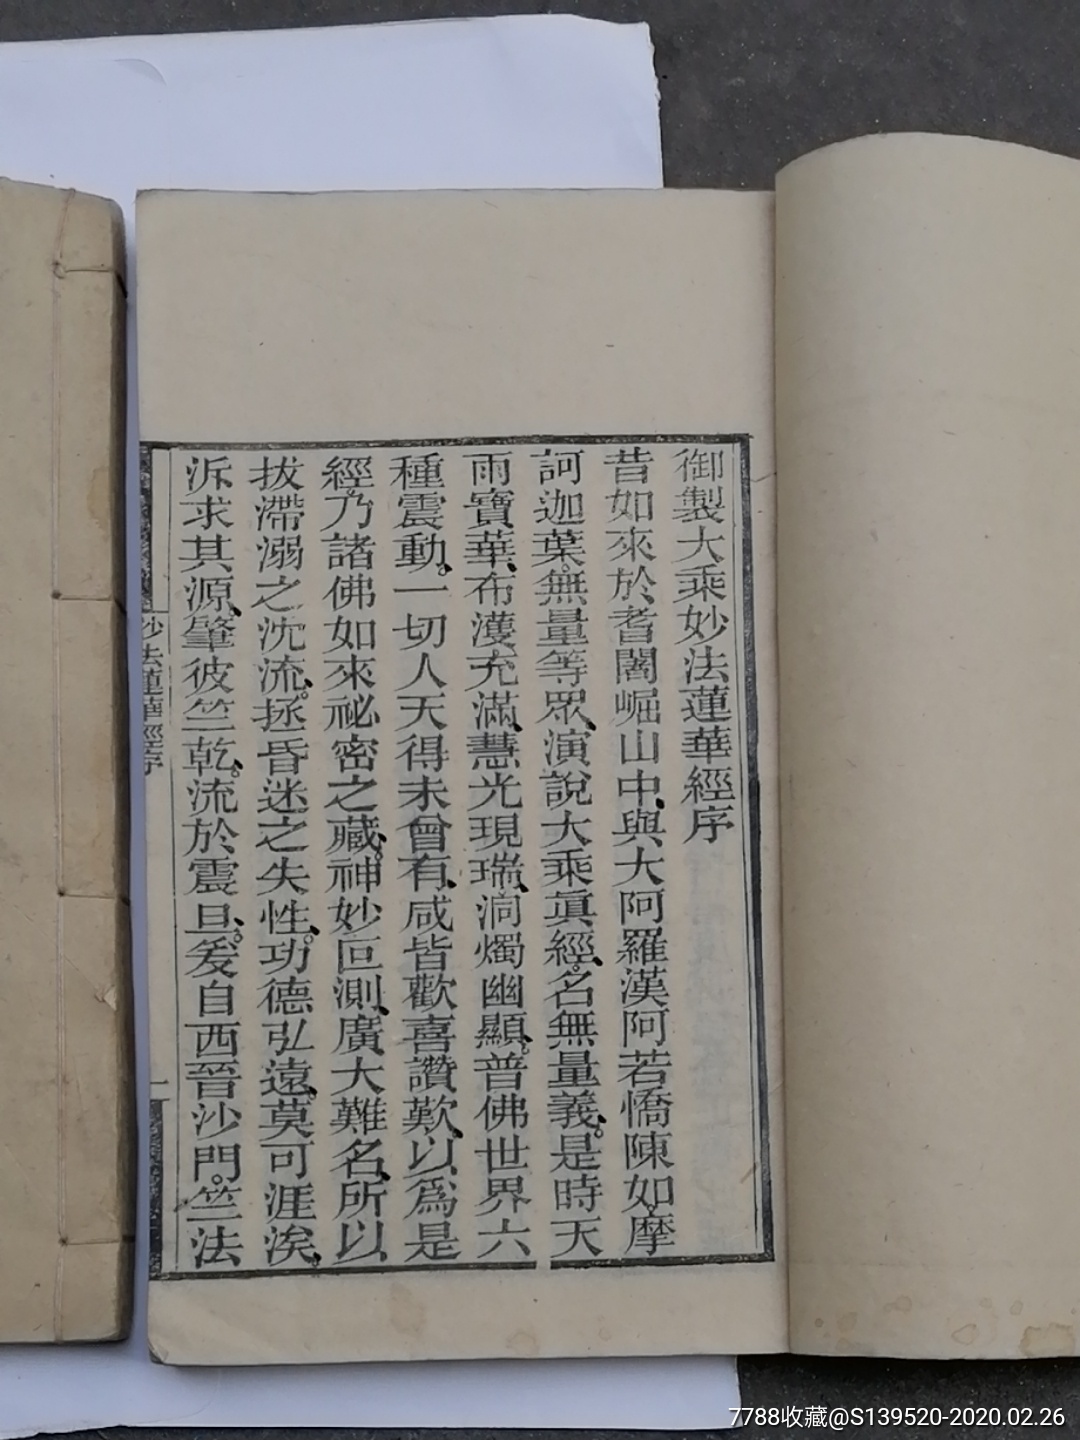 御製大乘妙法蓮華經序
昔如來於耆闍崛山中與大阿羅漢阿若憍陳如摩
訶迦葉無量等眾演說大乘眞經名無量義是時天
雨寶華布濩充滿慧光現瑞洞燭幽顯普佛世界六
種震動一切人天得未曾有咸皆歡喜讚歎以爲是
經乃諸佛如來祕密之藏神妙叵測廣大難名所以
拔滯溺之沈流拯昏迷之失性功德弘遠莫可涯涘
泝求其源肇彼竺乾流於震旦爰自西晉沙門竺法
妙法蓮華經序
一
7788收藏@S139520-2020.02.26